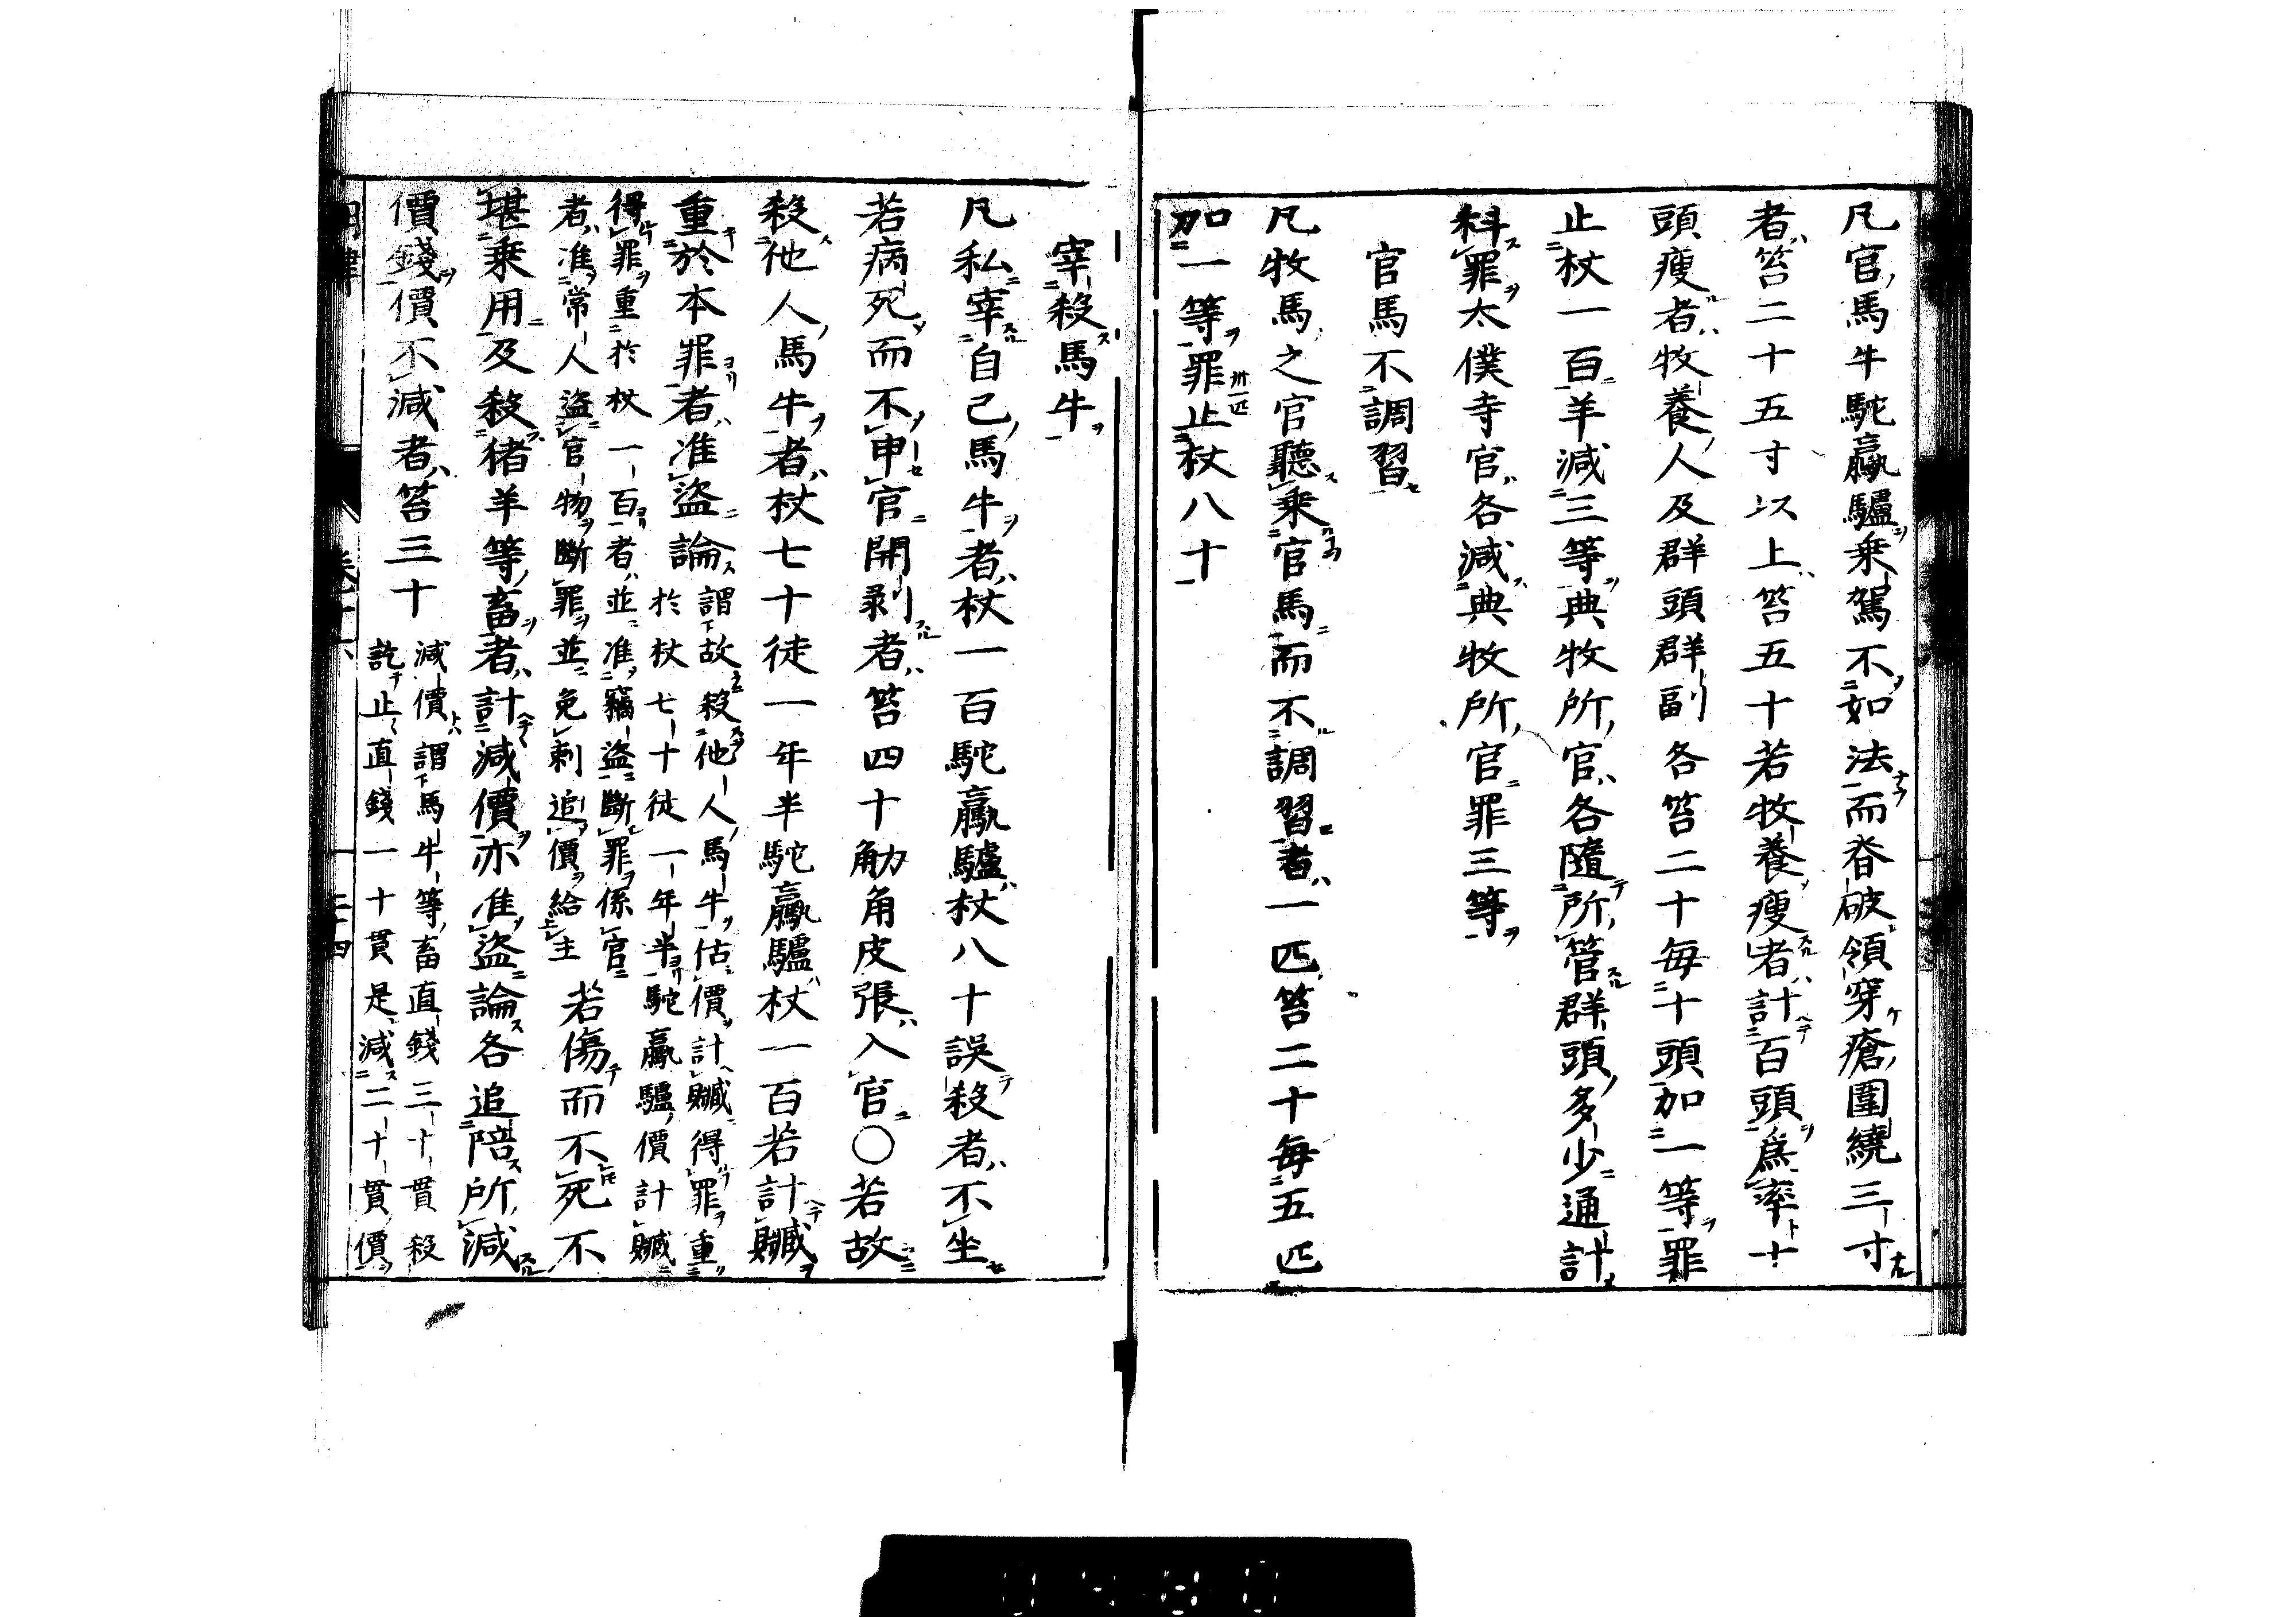 凡官馬牛駝驘驢乗駕不如法而脊破領穿瘡圍繞三寸
者笞二十五寸以上笞五十若牧養瘦者計百頭爲率十
頭瘦者牧養人及群頭群副各笞二十毎十頭加一等罪
止杖一百羊減三等典牧所官各隨所管群頭多少通計
科罪太僕寺官各減典牧所官罪三等
官馬不調習
凡牧馬之官聽乗官馬而不調習者一匹笞二十毎五匹
加一等罪止杖八十
卅一匹
宰殺馬牛
凡私宰自己馬牛者杖一百駝驘驢杖八十誤殺者不坐
若病死而不申官開剥者笞四十觔角皮張入官〇若故
殺他人馬牛者杖七十徒一年半駝驘驢杖一百若計贓
重於本罪者准盜論
謂故殺他人馬牛估價計贓得罪重
於杖七十徒一年半駝驘驢價計贓
得罪重於杖一百者並准竊盜斷罪係官
者准常人盜官物斷罪並免刺追價給主
若傷而不死不
堪乗用及殺猪羊等畜者計減價亦准盜論各追陪所減
價錢價不減者笞三十
減價謂馬牛等畜直錢三十貫殺
訖止直錢一十貫是減二十貫價
明律
卷十六
二十四